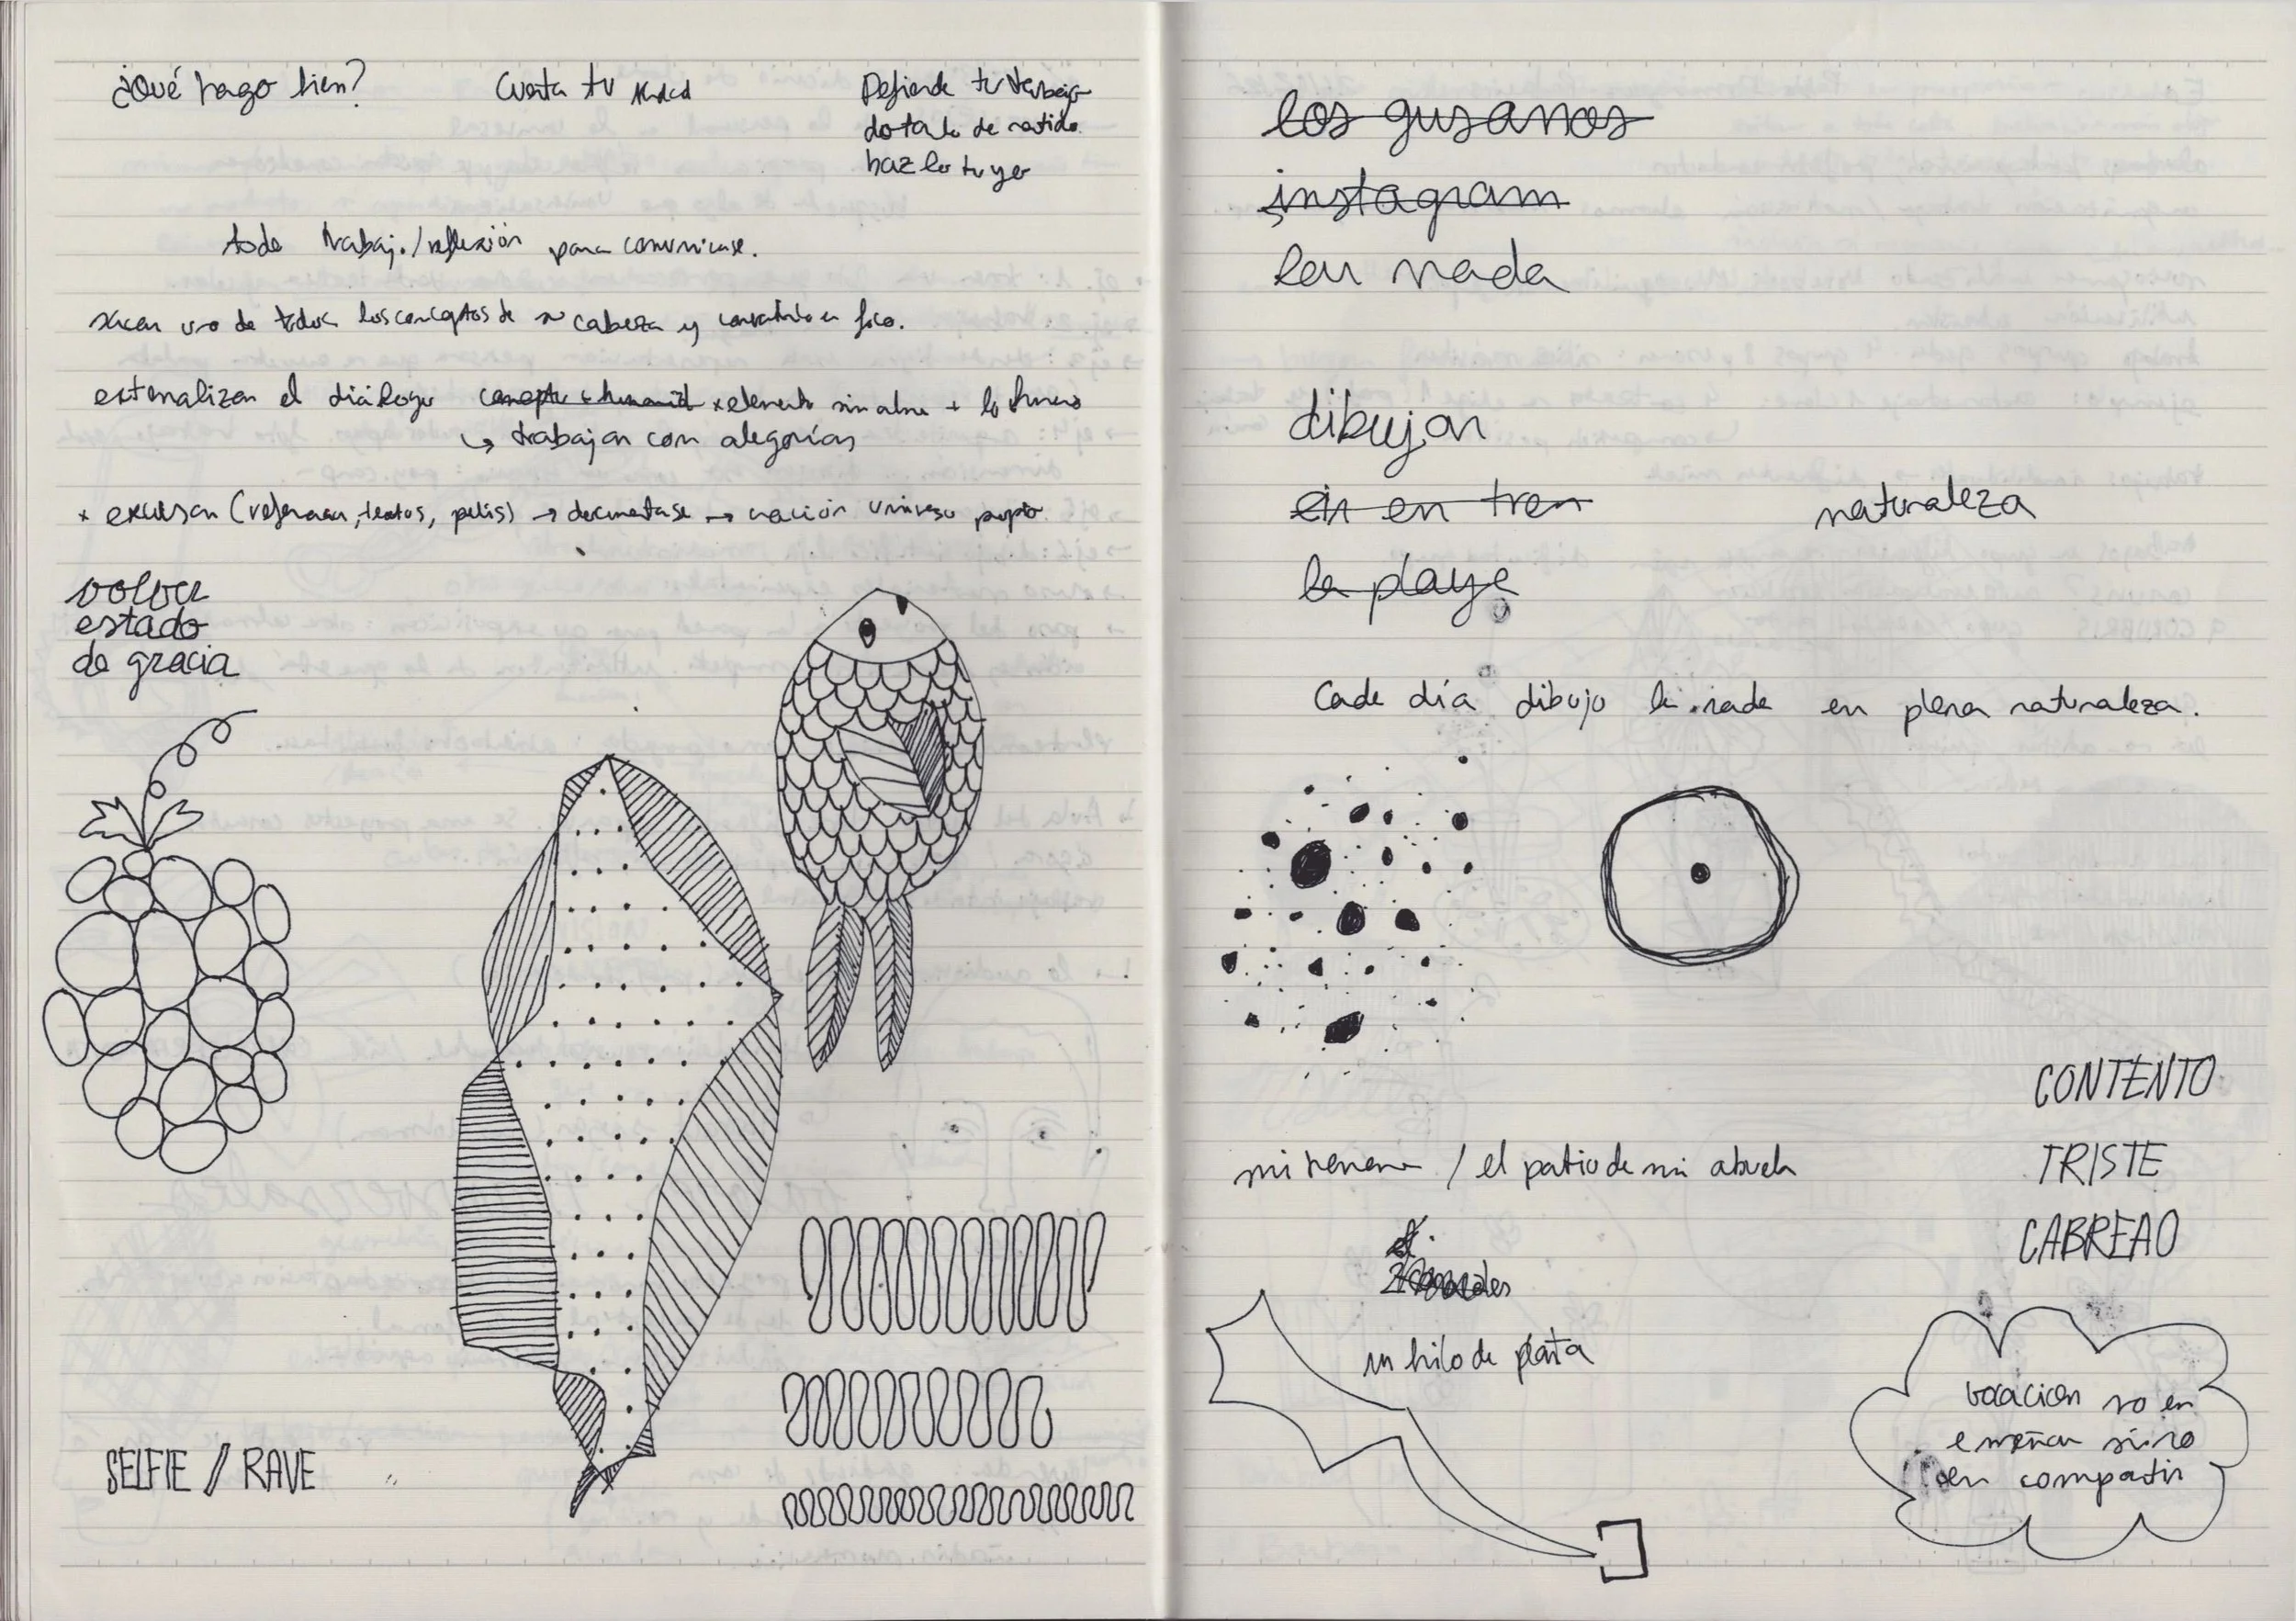 ¿Qué hago bien?
Cuenta tu verdad
Defiende tu trabajo
dotalo de sentido
hazlo tuyo
todo trabajo/reflexión para comunicarse.
sacar uno de todos los conceptos de su cabeza y convertirlo en foco.
externalizar el diálogo concepto + elemento sin alma + lo humano
↳ trabajar con alegorías
+ excursan (referencias, textos, pelis) → documentarse → creación universo propio.
volver
estado
de gracia
SELFIE // RAVE
los gusanos
instagram
leer nada
dibujar
ein en tren
naturaleza
la playa
Cada día dibujo la nada en plena naturaleza.
CONTENTO
TRISTE
CABREAO
mi nenena / el patio de mi abuela
un hilo de plata
vocación no en
enseñar sino
en compartir